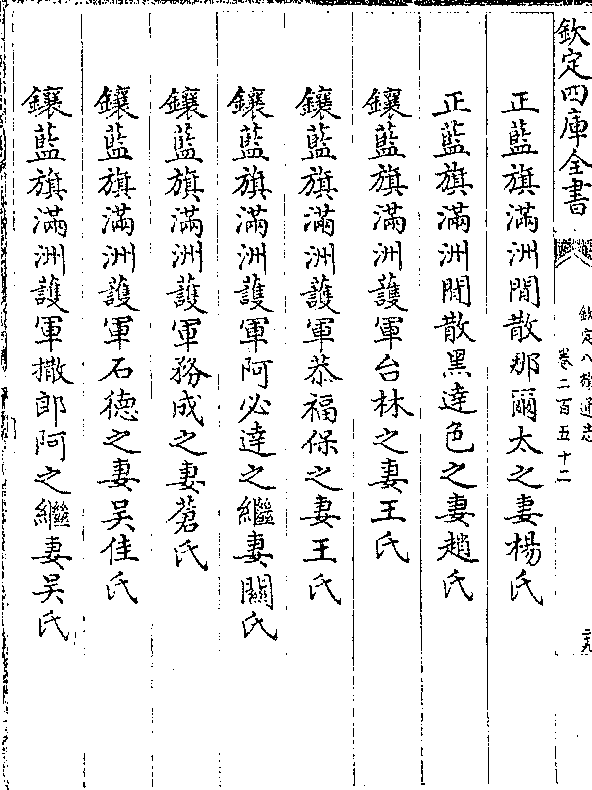 欽定四庫全書
欽定八旗通志
卷二百五十二
正藍旗滿洲閒散那爾太之妻楊氏
正藍旗滿洲閒散黑達色之妻趙氏
鑲藍旗滿洲護軍台林之妻王氏
鑲藍旗滿洲護軍恭福保之妻王氏
鑲藍旗滿洲護軍阿必達之繼妻關氏
鑲藍旗滿洲護軍務成之妻蒼氏
鑲藍旗滿洲護軍石德之妻吴佳氏
鑲藍旗滿洲護軍撒郎阿之繼妻吴氏